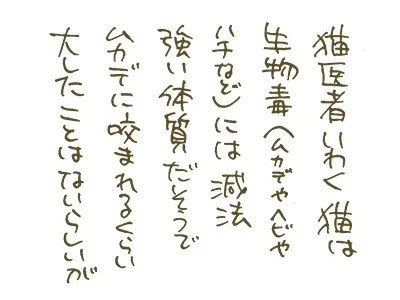 猫医者いわく 猫は
生物毒(ムカデやヘビや
ハチなど)には 滅法
強い体質だそうで
ムカデに咬まれるくらい
大したことはないらしいが